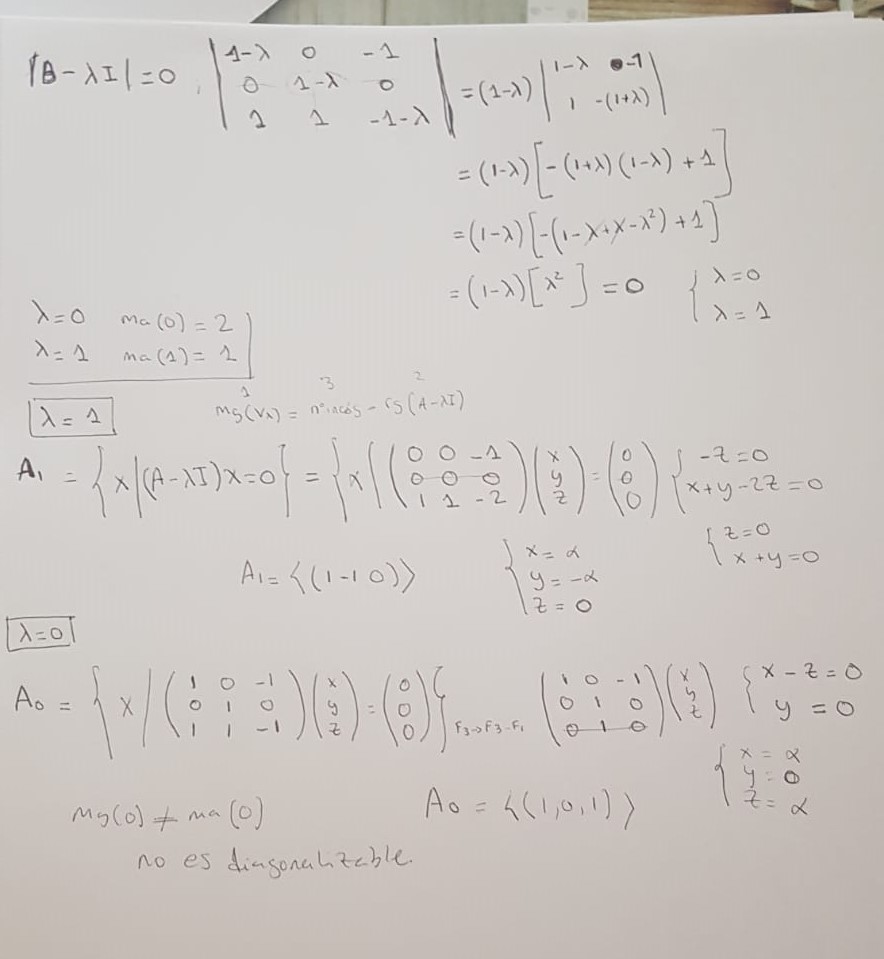 |B-λI|=0, | 1-λ 0 -1 | = (1-λ) | 1-λ 0-1 |
| 0 1-λ 0 | | 1 -(1+λ) |
| 1 1 -1-λ |
= (1-λ)[-(1+λ)(1-λ)+1]
= (1-λ)[-(1-λ+λ-λ²)+1]
= (1-λ)[λ²] = 0 { λ=0
λ=1
λ=0 ma(0)=2
λ=1 ma(1)=1
1 3 2
λ=1 mg(Vλ) = nºincóg - rg(A-λI)
A₁ = {x|(A-λI)x=0} = {x|(0 0 -1; 0 0 0; 1 1 -2)(x y z) = (0 0 0) { -z=0
x+y-2z=0
{ z=0
x+y=0
A₁ = <(1-1 0)> { x=α
y=-α
z=0
λ=0
A₀ = {x/(1 0 -1; 0 1 0; 1 1 -1)(x y z) = (0 0 0)} F3→F3-F1 (1 0 -1; 0 1 0; 0 1 0)(x y z) { x-z=0
y=0
{ x=α
y=0
z=α
mg(0) ≠ ma(0) A₀ = <(1,0,1)>
no es diagonalizable.